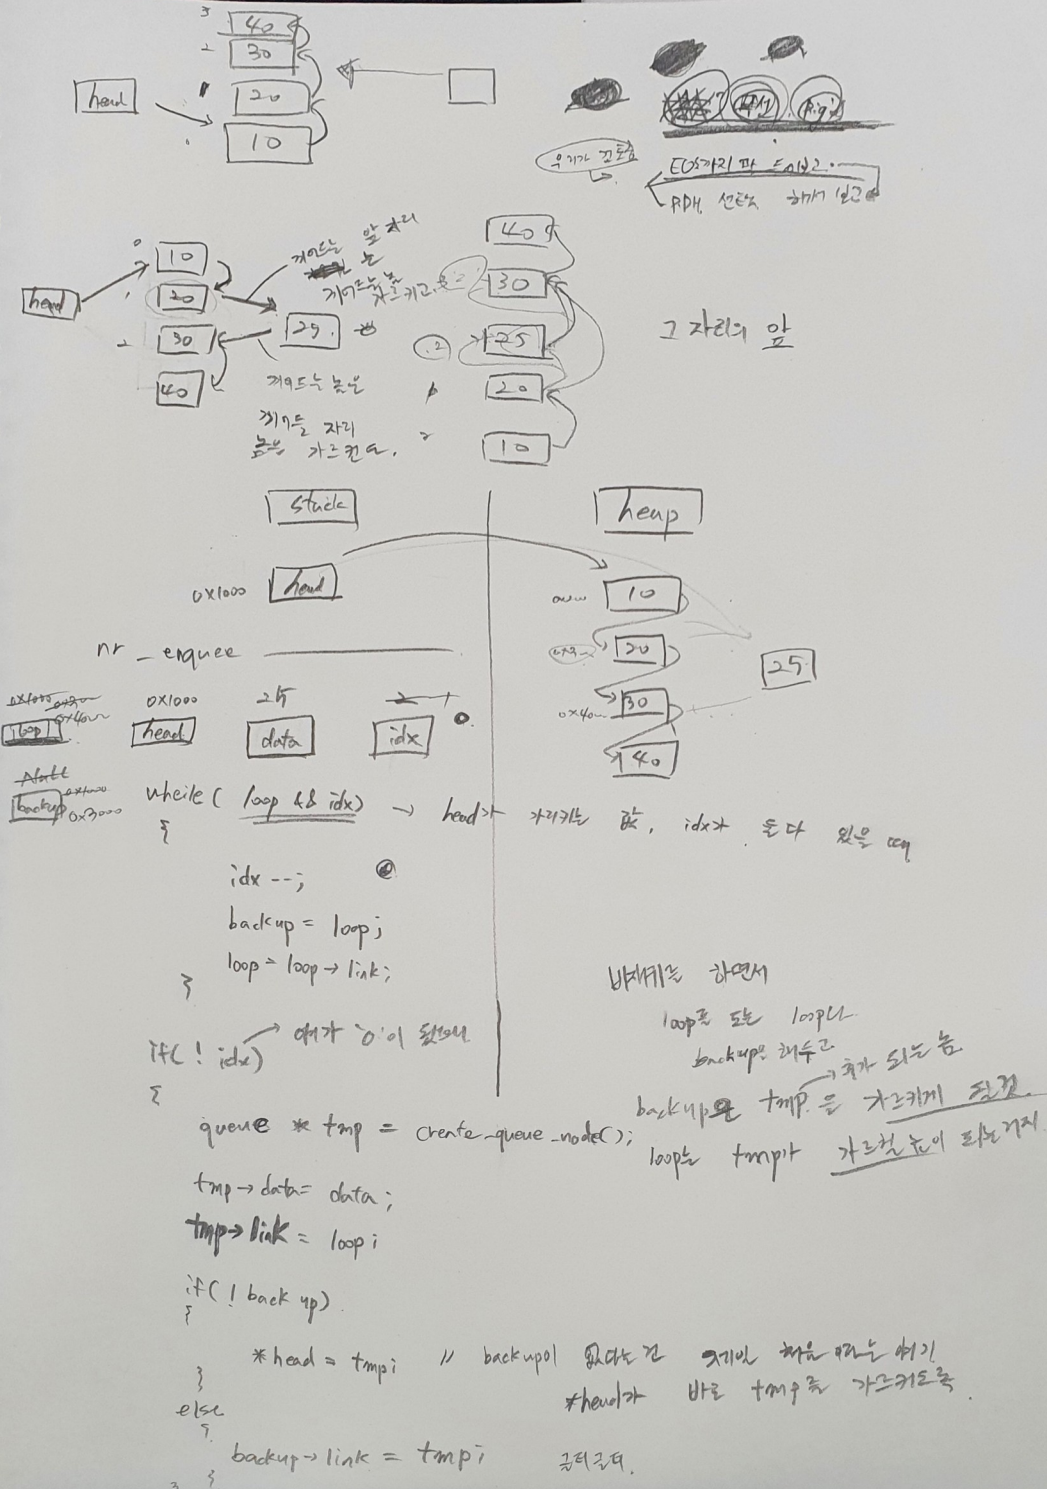 3 40
2 30
head 1 20
10
우리가
EOS까지
선택 해서 보고
0 10
head 1 20
2 30
40
끼어드는 앞 자리
는
끼어드는 놈
가르키고
25
끼어드는 놈은
끼어들 자리
놈을 가르킨다.
40
30
2 25
1 20
10
그 자리의 앞
stack
heap
0x1000 head
10
20
0x40 30
40
25
nr_enquee
0x1000
loop
0x1000
head
25
data
2
idx
0
Null
backup
0x1000
0x3000
wheile( loop && idx) → head가 가리키는 값, idx가 둘다 있을 때
{
idx --;
backup = loop;
loop = loop → link;
}
if( ! idx) → 여기가 '0'이 됐으니
{
queue * tmp = create_queue_node();
tmp → data = data;
tmp → link = loop;
if( ! back up)
{
*head = tmp; // backup이 없다는건 제일 처음 이라는 얘기
*head가 바로 tmp를 가르키도록
}
else
{
backup → link = tmp;
}
하면서
loop를 도는 loop나
backup은 해주고
→ 추가 되는 놈
backup은 tmp을 가르키게 될 것
loop는 tmp가 가르킬 놈이 되는거지